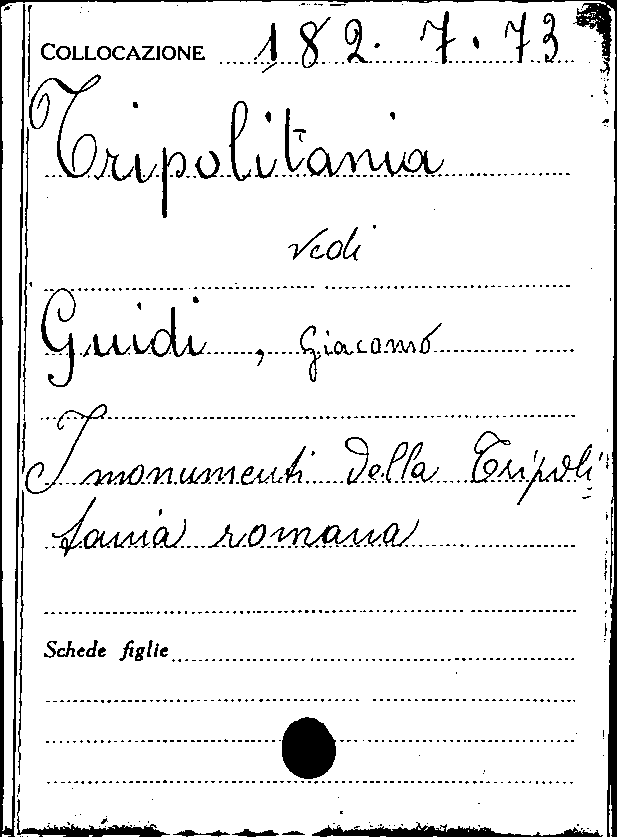 COLLOCAZIONE 182.7.73
Tripolitania
vedi
Guidi, Giacomo
I monumenti della Tripoli
tania romana
Schede figlie